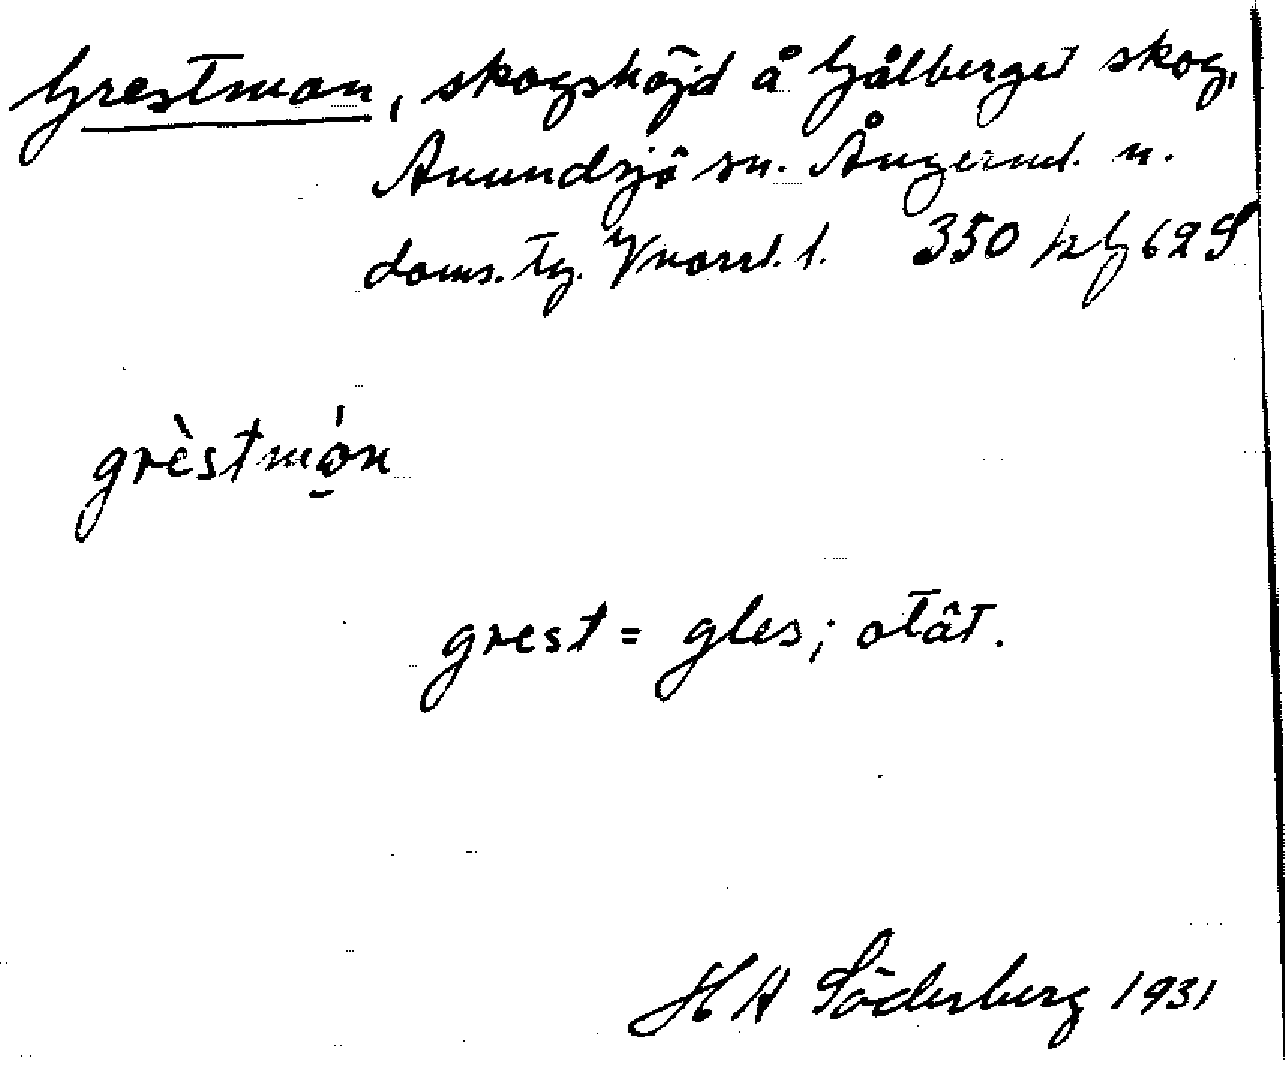 Grestman, skogshöjd å Gålberget skog,
Anundsjö sn. Ångerml. n.
doms. tg. Vnorrl. l. 350 kf 62 S
grèstmó̱n
grest = gles; otät.
H A Söderberg 1931